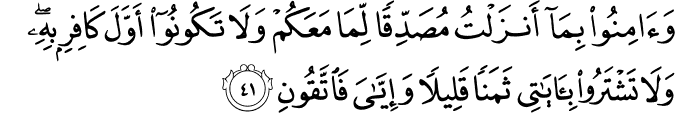 وَءَامِنُوا۟ بِمَآ أَنزَلْتُ مُصَدِّقًا لِّمَا مَعَكُمْ وَلَا تَكُونُوٓا۟ أَوَّلَ كَافِرٍۭ بِهِۦ ۖ
وَلَا تَشْتَرُوا۟ بِـَٔايَـٰتِى ثَمَنًا قَلِيلًا وَإِيَّـٰىَ فَٱتَّقُونِ ٤١